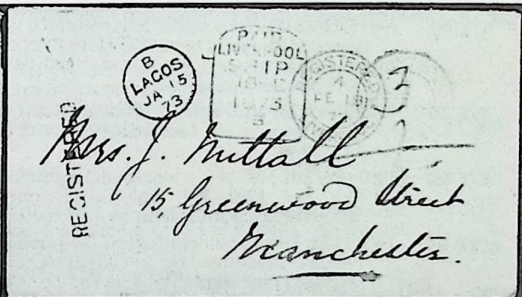 B
LAGOS
JA 15
73
PAID
LIVERPOOL
SHIP
1873
B
REGISTERED
4
FE 18
REGISTERED
Mrs. J. Nuttall
15, Greenwood Street
Manchester.